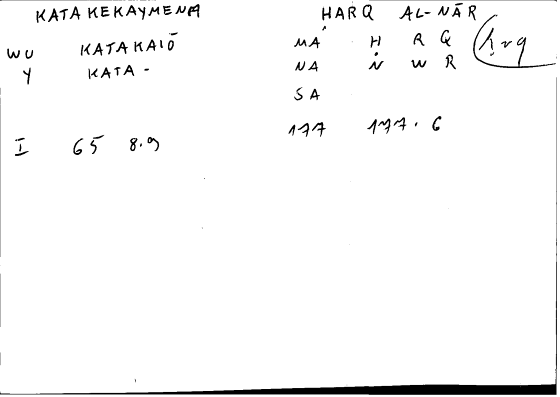 KATAKEKAYMENA HARQ AL-NĀR
WU KATAKAIŌ MÁ Ḥ R Q ḥrq
Y KATA- NA N W R
SA
I 65 8.9 177 177.6